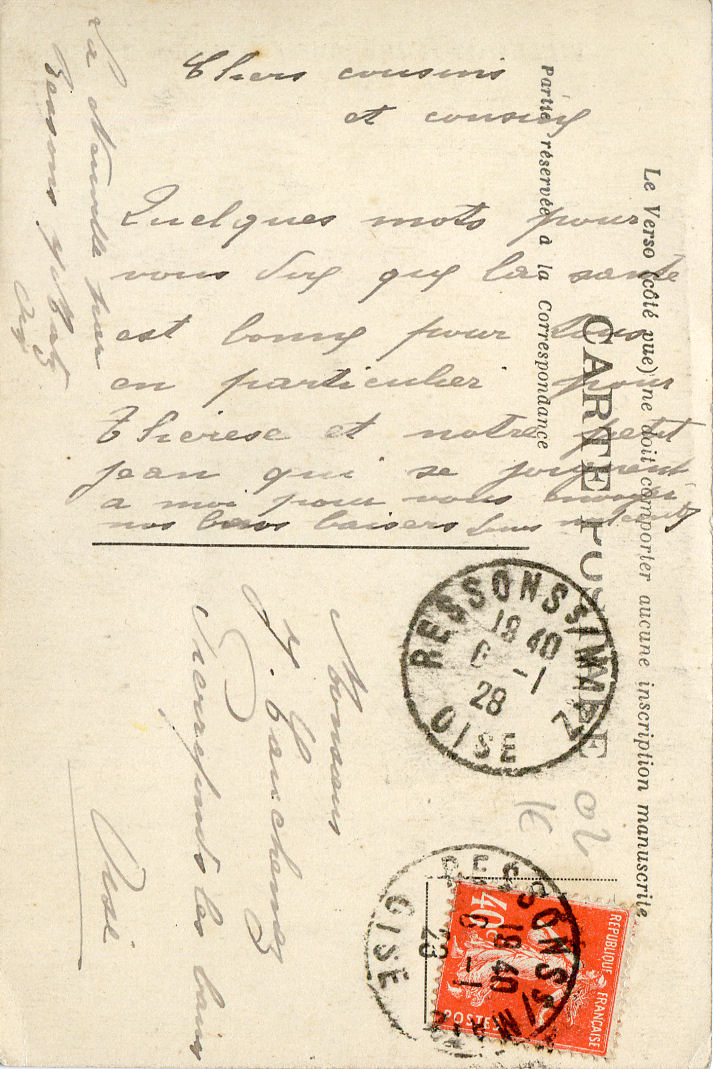 Le Verso (côté vue) ne doit comporter aucune inscription manuscrite
CARTE POSTALE
Partie réservée à la Correspondance
Chers cousins
et cousine
Quelques mots pour
vous dire que la santé
est bonne pour tous
en particulier pour
Thérèse et notre petit
Jean qui se joignent
a moi pour vous envoyer
nos bons baisers
La Neuville sur
Ressons
Oise
Monsieur
Pierrefonds les bains
Oise
RESSONS S/MATZ
18 40
6 -1
28
OISE
RESSONS S/MATZ
18 40
6 -1
OISE
REPUBLIQUE FRANÇAISE
40c
POSTES